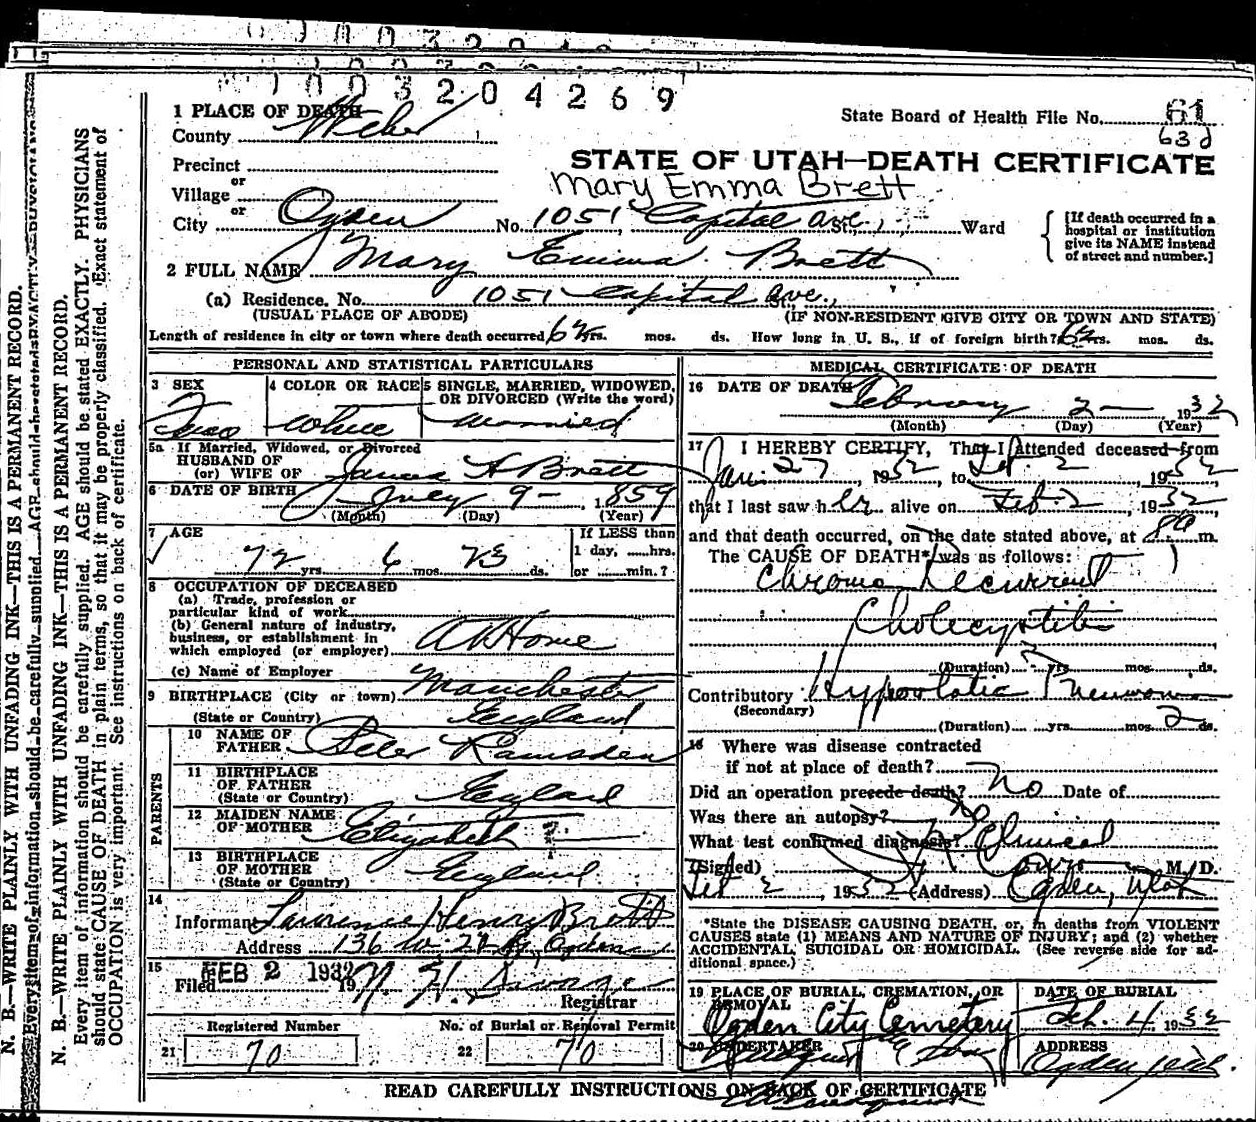 1003204269
1 PLACE OF DEATH
County Weber
State Board of Health File No. 61
63d
Precinct
or
Village
or
City Ogden No. 1051 Capital Ave. St., Ward
STATE OF UTAH—DEATH CERTIFICATE
Mary Emma Brett
[If death occurred in a
hospital or institution
give its NAME instead
of street and number.]
2 FULL NAME Mary Emma Brett
(a) Residence. No. 1051 Capital Ave.,
(USUAL PLACE OF ABODE) (IF NON-RESIDENT GIVE CITY OR TOWN AND STATE)
Length of residence in city or town where death occurred yrs. mos. ds. How long in U. S., if of foreign birth? yrs. mos. ds.
PERSONAL AND STATISTICAL PARTICULARS
3 SEX 4 COLOR OR RACE 5 SINGLE, MARRIED, WIDOWED,
OR DIVORCED (Write the word)
White Married
5a If Married, Widowed, or Divorced
HUSBAND OF
(or) WIFE OF James H Brett
6 DATE OF BIRTH July 9- 1859
(Month) (Day) (Year)
7 AGE If LESS than
1 day, hrs.
72 yrs. 6 mos. 23 ds. or min.?
8 OCCUPATION OF DECEASED
(a) Trade, profession or
particular kind of work
(b) General nature of industry,
business, or establishment in
which employed (or employer) At Home
(c) Name of Employer
9 BIRTHPLACE (City or town) Manchester
(State or Country) England
PARENTS
10 NAME OF
FATHER Peter Ramsden
11 BIRTHPLACE
OF FATHER
(State or Country) England
12 MAIDEN NAME
OF MOTHER Elizabeth ?
13 BIRTHPLACE
OF MOTHER
(State or Country) England
14
Informant Lawrence Henry Brett
Address 136 W Ogden
15
Filed FEB 2 1932
Registrar
Registered Number No. of Burial or Removal Permit
21 70 22 70
MEDICAL CERTIFICATE OF DEATH
16 DATE OF DEATH
February 2— 1932
(Month) (Day) (Year)
17 I HEREBY CERTIFY, That I attended deceased from
Jan. 27, 1932, to Feb. 2, 1932
that I last saw her alive on Feb. 2, 1932
and that death occurred, on the date stated above, at 8 a m.
The CAUSE OF DEATH* was as follows:
Chronic Recurrent
Cholecystitis
(Duration) yrs. mos. ds.
Contributory Hypostatic Pneumonia
(Secondary)
(Duration) yrs. mos. 2 ds.
18 Where was disease contracted
if not at place of death?
Did an operation precede death? no Date of
Was there an autopsy? No
What test confirmed diagnosis? Clinical
(Signed) M. D.
Feb 2, 1932 (Address) Ogden, Utah
*State the DISEASE CAUSING DEATH, or, in deaths from VIOLENT
CAUSES state (1) MEANS AND NATURE OF INJURY; and (2) whether
ACCIDENTAL, SUICIDAL OR HOMICIDAL. (See reverse side for ad-
ditional space.)
19 PLACE OF BURIAL, CREMATION, OR
REMOVAL
Ogden City Cemetery
DATE OF BURIAL
Feb. 4 1932
20 UNDERTAKER
ADDRESS
Ogden Utah.
READ CAREFULLY INSTRUCTIONS ON BACK OF CERTIFICATE
N. B.—WRITE PLAINLY WITH UNFADING INK—THIS IS A PERMANENT RECORD.
Every item of information should be carefully supplied. AGE should be stated EXACTLY. PHYSICIANS
N. B.—WRITE PLAINLY WITH UNFADING INK—THIS IS A PERMANENT RECORD.
Every item of information should be carefully supplied. AGE should be stated EXACTLY. PHYSICIANS
should state CAUSE OF DEATH in plain terms, so that it may be properly classified. Exact statement of
OCCUPATION is very important. See instructions on back of certificate.